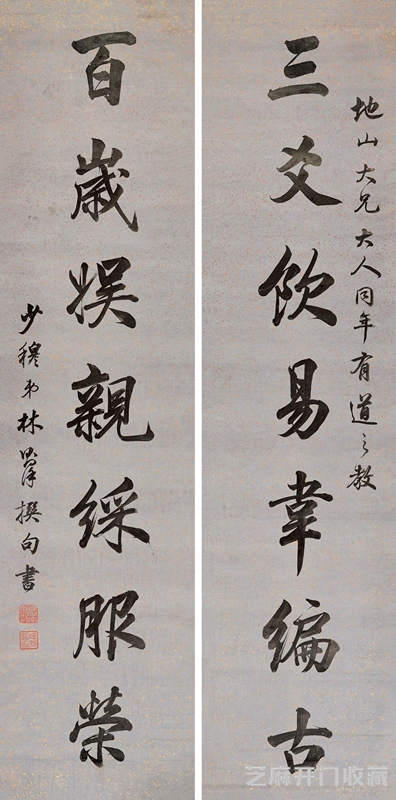 地山大兄大人同年有道之教
三爻飲易韋編古
百歲娱親綵服榮
少穆弟林則徐撰句書
芝麻开门收藏